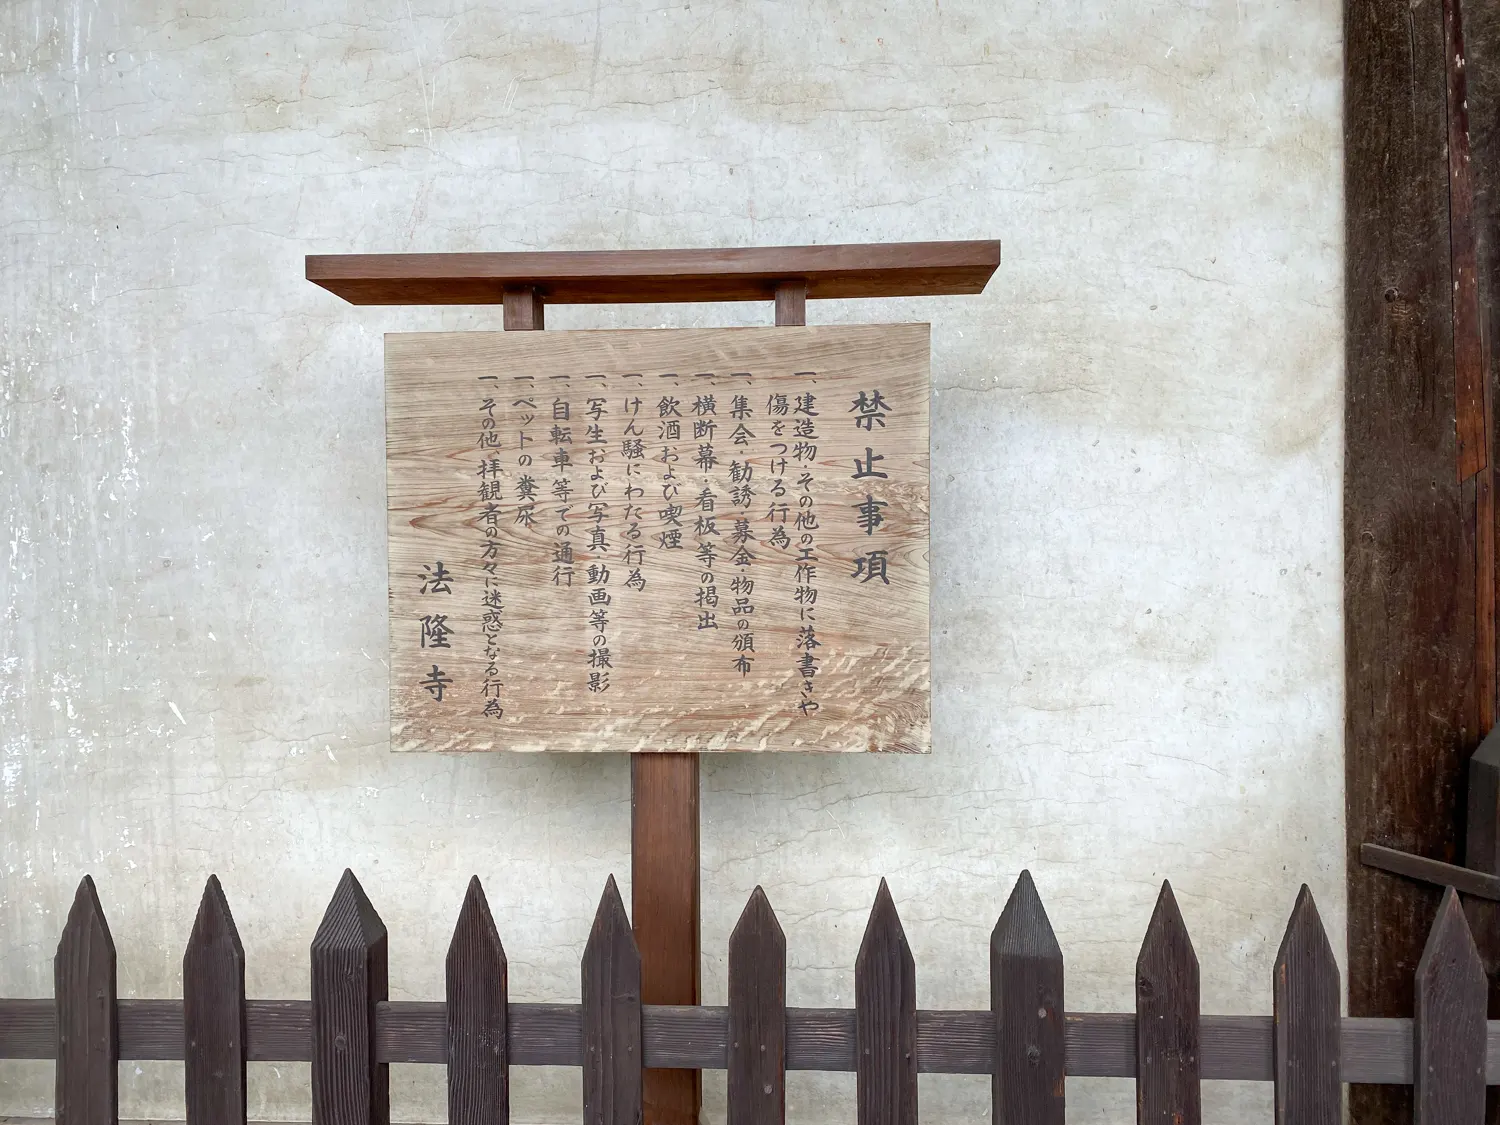 禁止事項
一、建造物・その他の工作物に落書きや
傷をつける行為
一、集会・勧誘・募金・物品の頒布
一、横断幕・看板等の掲出
一、飲酒および喫煙
一、けん騒にわたる行為
一、写生および写真・動画等の撮影
一、自転車等での通行
一、ペットの糞尿
一、その他、拝観者の方々に迷惑となる行為
法隆寺